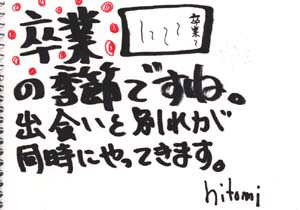 卒業
の季節ですね。
出会いと別れが
同時にやってきます。
hitomi